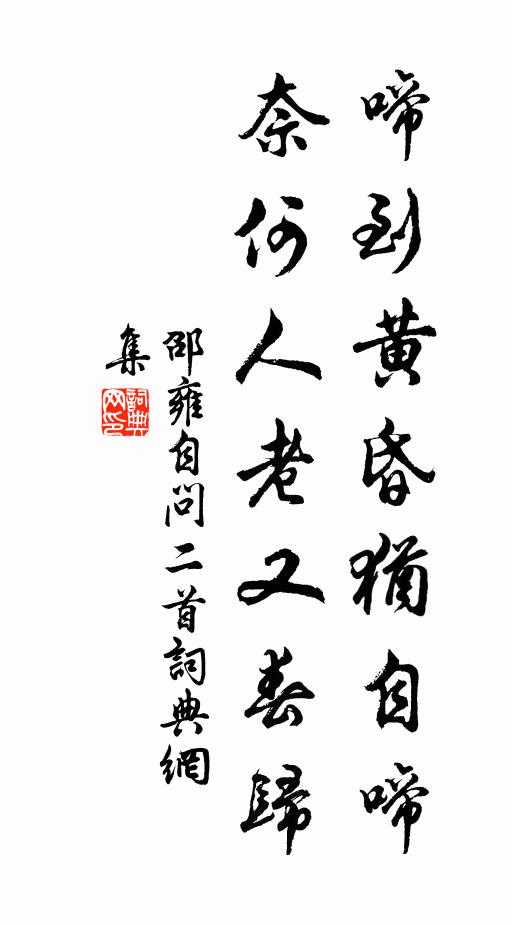 啼到黄昏猶自啼
奈何人老又春歸
邵雍自問二首詞典網
集
詞典
网印